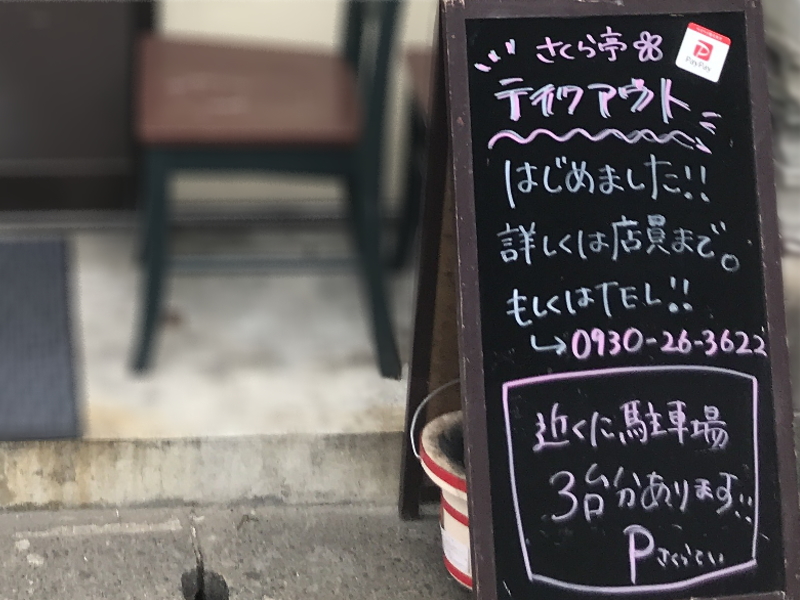 さくら亭
PayPay
テイクアウト
はじめました!!
詳しくは店員まで。
もしくはTEL!!
↳0930-26-3622
近くに駐車場
3台分あります!!
P さくらてい